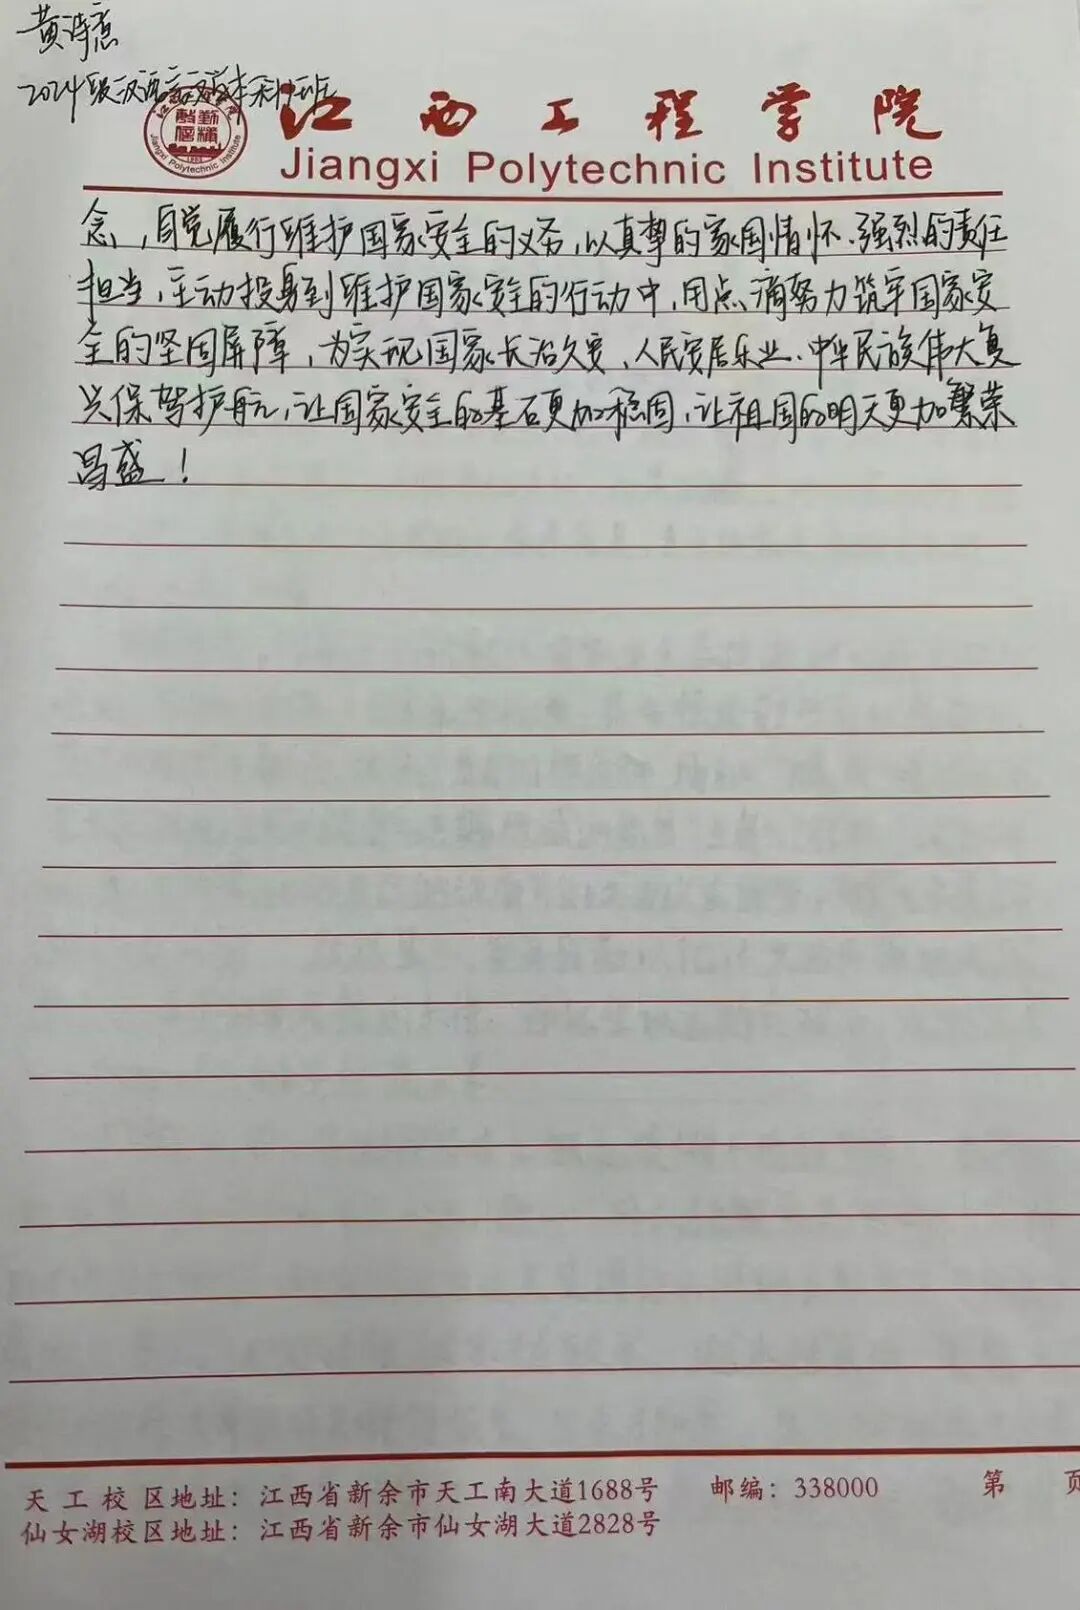 黄诗意
2024级汉语言文学本科1班
江西工程学院
Jiangxi Polytechnic Institute
念，自觉履行维护国家安全的义务，以真挚的家国情怀、强烈的责任
担当，主动投身到维护国家安全的行动中，用点滴努力筑牢国家安
全的坚固屏障，为实现国家长治久安、人民安居乐业、中华民族伟大复
兴保驾护航，让国家安全的基石更加稳固，让祖国的明天更加繁荣
昌盛！
天工校区地址：江西省新余市天工南大道1688号 邮编：338000 第 页
仙女湖校区地址：江西省新余市仙女湖大道2828号